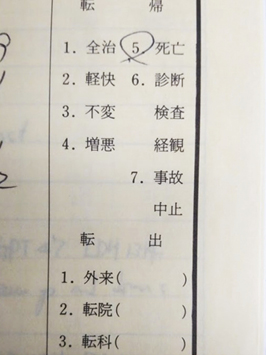 転 帰
1. 全治 5. 死亡
2. 軽快 6. 診断
3. 不変 検査
4. 増悪 経観
7. 事故
中止
転 出
1. 外来( )
2. 転院( )
3. 転科( )